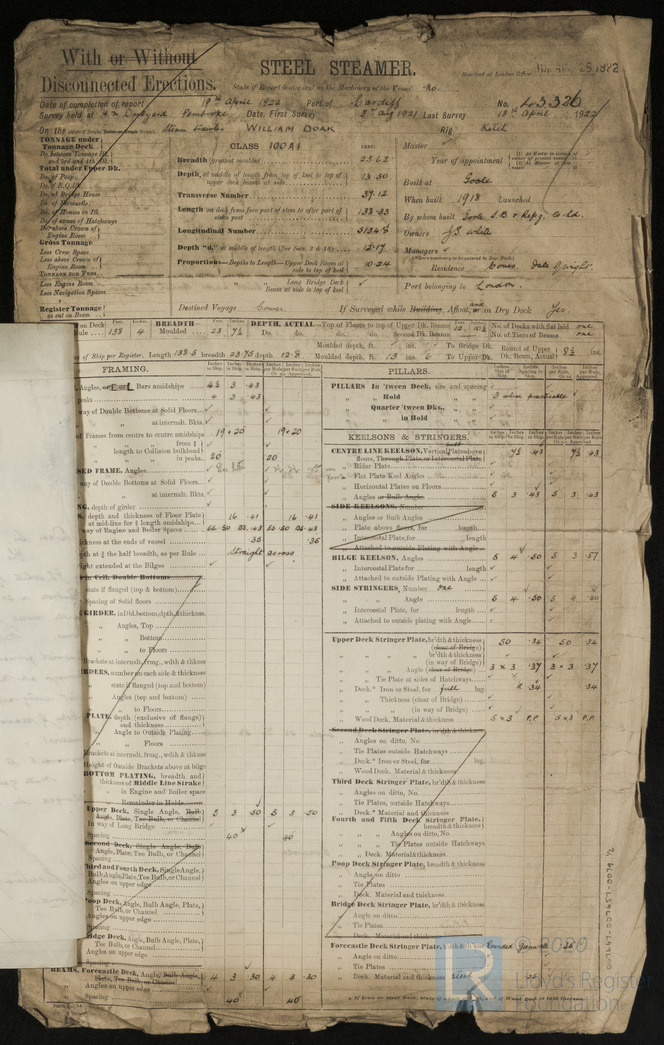 With or Without
Disconnected Erections.
STEEL STEAMER.
Received at London Office
State if Report is also sent on the Machinery of the Vessel No.
Date of completion of report 19th April 1922 Port of Cardiff No. 3326
Survey held at Dockyard Pembroke Date, First Survey 2nd Aug 1921 Last Survey 18th April 1922
On the Steam Trawler WILLIAM DOAK Rig Ketch
TONNAGE under Tonnage Deck
Do. between Tonnage Dk. and 3rd and 4th Dk.
Total under Upper Dk.
Do. of Poop
Do. of R.Q.Dk.
Do. of Bridge House
Do. of Forecastle
Do. of Houses on Dk.
Do. of excess of Hatchways
Do. above Crown of Engine Room
Gross Tonnage
Less Crew Space
Less above Crown of Engine Room
TONNAGE FOR FEES
Less Engine Room
Less Navigation Spaces
Register Tonnage as cut on Beam
CLASS 100A1 FEET.
Breadth (greatest moulded) 23.62
Depth, at middle of length from top of keel to top of upper deck beams at side 13.50
Transverse Number 37.12
Length on deck from fore part of stem to after part of stern post 138.33
Longitudinal Number 5134.8
Depth "d," at middle of length (See Secs. 2 & 13) 12.17
Proportions—Depths to Length—Upper Deck Beam at side to top of keel 10.24
" " Long Bridge Deck Beam at side to top of keel
Destined Voyage Cowes.
Master
Year of appointment
Built at Goole
When built 1918 Launched
By whom built Goole S.B. & Repg. Co. Ld.
Owners J.S. White
Managers
Residence Cowes, Isle of Wight.
Port belonging to London.
If Surveyed while Building, Afloat, and in Dry Dock Yes.
on Deck Rule 138 4 BREADTH— Moulded 23 7½ DEPTH, ACTUAL—Top of Floors to top of Upper Dk. Beams 12 10½ No. of Decks with flat laid one
Do. do. do. Second Dk. Beams No. of Tiers of Beams one
of Ship per Register, Length 138.5 breadth 23.75 depth 12.8 Moulded depth, ft. ins. To Bridge Dk. Round of Upper Dk. Beam, Actual 8½ ins.
Moulded depth, ft. 13 ins. 6 To Upper Dk.
FRAMING.
Angles, or Bars amidships 4½ 3 .43
peaks 4 3 .43
way of Double Bottoms at Solid Floors
" at intermdt. Bkts.
of Frames from centre to centre amidships 19 & 20 19 & 20
length to Collision bulkhead
in peaks 20 20
SED FRAME, Angles
way of Double Bottoms at Solid Floors
" " at intermdt. Bkts.
NG, depth of girder
S, depth and thickness of Floor Plate at mid-line for ½ length amidships 16 .41 16 .41
way of Engine and Boiler Spaces
ickness at the ends of vessel .35 .35
epth at ¾ the half breadth, as per Rule Straight across
ight extended at the Bilges
in Cell. Double Bottoms
state if flanged (top & bottom)
Spacing of Solid floors
GIRDER, in Dbl. bottom, dpth. & thickness
" Angles, Top
" " Bottom
" " to Floors
Brackets at intermdt. frmg., wdth & thkns
RDERS, number on each side & thickness
" state if flanged (top and bottom)
" Angles (top and bottom)
" " to Floors
PLATE, depth (exclusive of flange) and thickness
Angle to Outside Plating
" Floors
Brackets at intermdt. frmg., wdth & thkns
Height of Outside Brackets above at bilge
BOTTOM PLATING, breadth and thickness of Middle Line Strake
" in Engine and Boiler space
Remainder in Holds
Upper Deck, Single Angle, Bulb Angle, Plate, Tee Bulb, or Channel 5 3 .50 5 3 .50
In way of Long Bridge
Spacing 40 40
Second Deck, Single Angle, Bulb Angle, Plate, Tee Bulb, or Channel
Spacing
Third and Fourth Deck, Single Angle, Bulb Angle, Plate, Tee Bulb, or Channel
Angles on upper edge
Spacing
Poop Deck, Angle, Bulb Angle, Plate, Tee Bulb, or Channel
Angles on upper edge
Spacing
Bridge Deck, Angle, Bulb Angle, Plate, Tee Bulb, or Channel
Angles on upper edge
Spacing
BEAMS, Forecastle Deck, Angle, Bulb Angle, Plate, Tee Bulb, or Channel 4 3 .30 4 3 .30
" Angles on upper edge
" Spacing 40 40
PILLARS.
PILLARS In 'tween Deck, size and spacing
" Hold " " 3 where practicable
" Quarter 'tween Dks., " "
" in Hold " "
KEELSONS & STRINGERS.
CENTRE LINE KEELSON, Vertical Plate above floors, Through Plate, or Intercostal Plate 7½ .43 7½ .43
" Rider Plate
" Flat Plate Keel Angles
" Horizontal Plates on Floors
" Angles or Bulb Angles 5 3 .43 5 3 .43
SIDE KEELSONS, Number
" Angles or Bulb Angles
" Plate above floors, for length
" Intercostal Plate, for length
" Attached to outside Plating with Angle
BILGE KEELSON, Angles 5 4 .50 5 3 .57
" Intercostal Plate for length
" Attached to outside Plating with Angle
SIDE STRINGERS, Number one
" Angle 5 4 .50 5 4 .50
" Intercostal Plate, for length
" Attached to outside plating with Angle
Upper Deck Stringer Plate, br'dth & thickness (clear of Bridge) 50 .34 50 .34
" " " br'dth & thickness (in way of Bridge)
" " " Angle (clear of Bridge) 3 x 3 .37 3 x 3 .37
" Tie Plate at sides of Hatchways
" Deck.* Iron or Steel, for full lng. .34 .34
" Thickness (clear of Bridge)
" " (in way of Bridge)
" Wood Deck, Material & thickness 5 x 3 P.P. 5 x 3 P.P.
Second Deck Stringer Plate, br'dth & thickness
" Angles on ditto, No.
" Tie Plates outside Hatchways
" Deck.* Iron or Steel, for lng.
" Wood Deck, Material & thickness
Third Deck Stringer Plate, br'dth & thickness
" Angles on ditto, No.
" Tie Plates, outside Hatchways
" Deck.* Material and thickness
Fourth and Fifth Deck Stringer Plate, breadth & thickness
" " Angles on ditto, No.
" " Tie Plates outside Hatchways
" " Deck. Material & thickness
Poop Deck Stringer Plate, breadth & thickness
" Angle on ditto
" Tie Plates
" Deck. Material and thickness
Bridge Deck Stringer Plate, br'dth & thickness
" Angle on ditto
" Tie Plates
" Deck. Material and thickness
Forecastle Deck Stringer Plate, b'dth & th'kns
" Angle on ditto
" Tie Plates
" Deck. Material and thickness Steel
© 2020
Lloyd's Register
Foundation